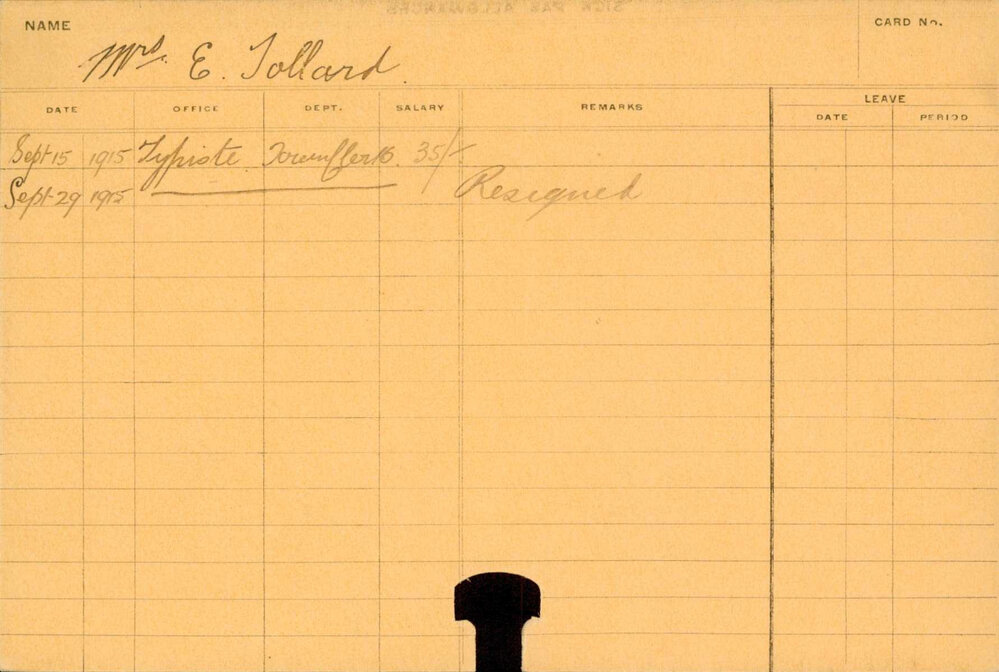 SICK PAY ALLOWANCES
NAME
CARD No.
Mrs. E. Tollard.
DATE OFFICE DEPT. SALARY REMARKS LEAVE
DATE PERIOD
Sept 15 1915 Typiste Town Clerks. 35/-.
Sept 29 1915 Resigned